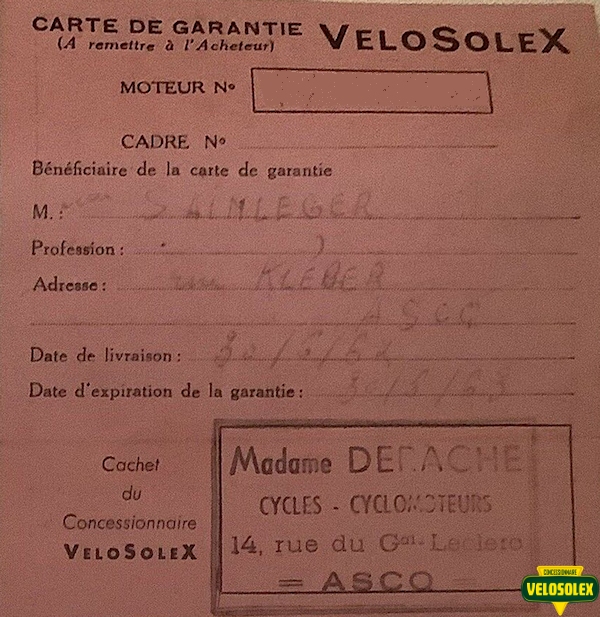 CARTE DE GARANTIE
(A remettre à l'Acheteur)
VELOSOLEX
MOTEUR No
CADRE No
Bénéficiaire de la carte de garantie
M. : SAINLEGER
Profession :
Adresse : rue KLEBER
ASCQ
Date de livraison : 30/5/62
Date d'expiration de la garantie : 30/5/63
Cachet
du
Concessionnaire
VELOSOLEX
Madame DEFACHE
CYCLES - CYCLOMOTEURS
14, rue du Gal. Leclerc
= ASCQ =
CONCESSIONNAIRE
VELOSOLEX